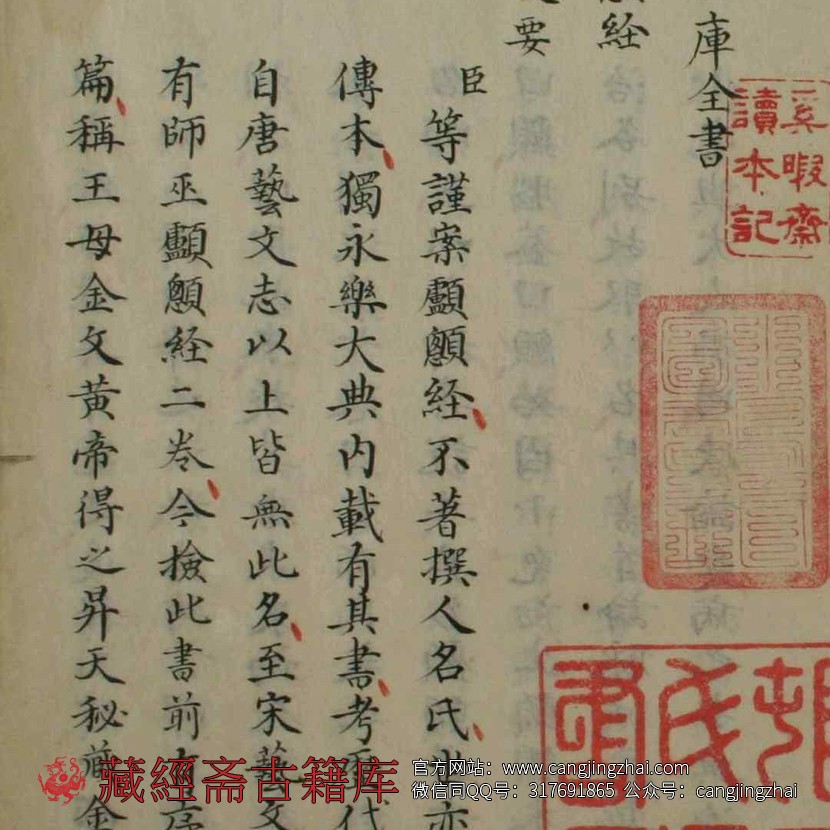 庫全書
顱經
要
臣等謹案顱顖經不著撰人名氏世亦
傳本獨永樂大典内載有其書考歷代
自唐藝文志以上皆無此名至宋藝文
有師巫顱顖經二卷今檢此書前有序
篇稱王母金文黃帝得之昇天秘藏金
奚暇齋
讀本記
藏經斋古籍库
官方网站：www.cangjingzhai.com
微信同QQ号：317691865 公众号：cangjingzhai